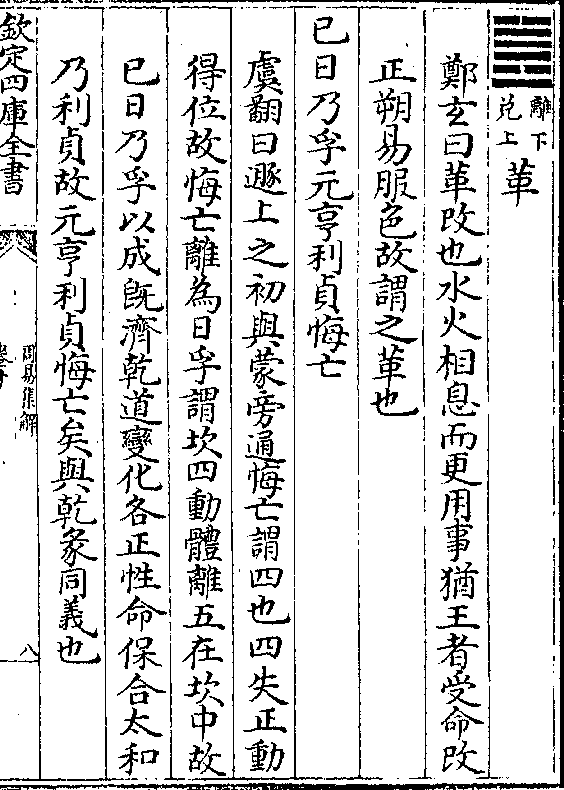 離下
兌上
革
鄭玄曰革改也水火相息而更用事猶王者受命改
正朔易服色故謂之革也
已日乃孚元亨利貞悔亡
虞翻曰遯上之初與蒙旁通悔亡謂四也四失正動
得位故悔亡離為日孚謂坎四動體離五在坎中故
已日乃孚以成既濟乾道變化各正性命保合太和
乃利貞故元亨利貞悔亡矣與乾彖同義也
欽定四庫全書
周易集解
八